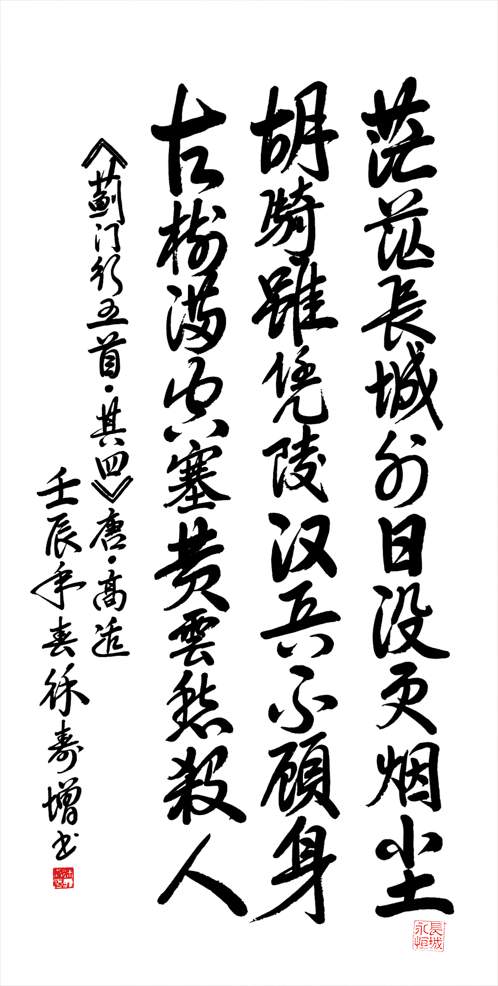 茫茫長城外日没更烟尘
胡騎雖凭陵汉兵不顾身
古樹满空塞黄雲愁殺人
《薊门行五首·其四》唐·高适
壬辰年春徐寿增书
長城永恒